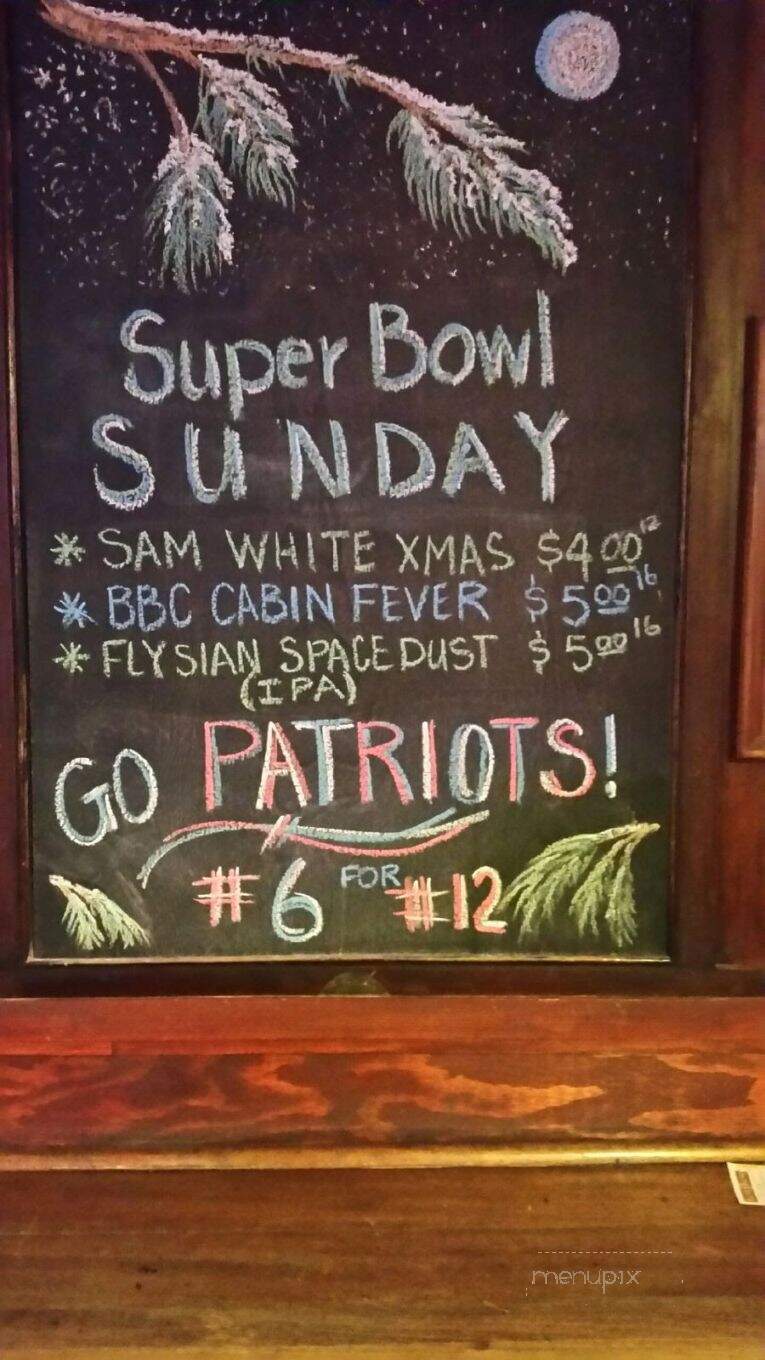 Super Bowl
SUNDAY
* SAM WHITE XMAS $4.00 12
* BBC CABIN FEVER $5.00 16
* FLYSIAN SPACEDUST $5.00 16
(IPA)
GO PATRIOTS!
#6 FOR #12
menupix